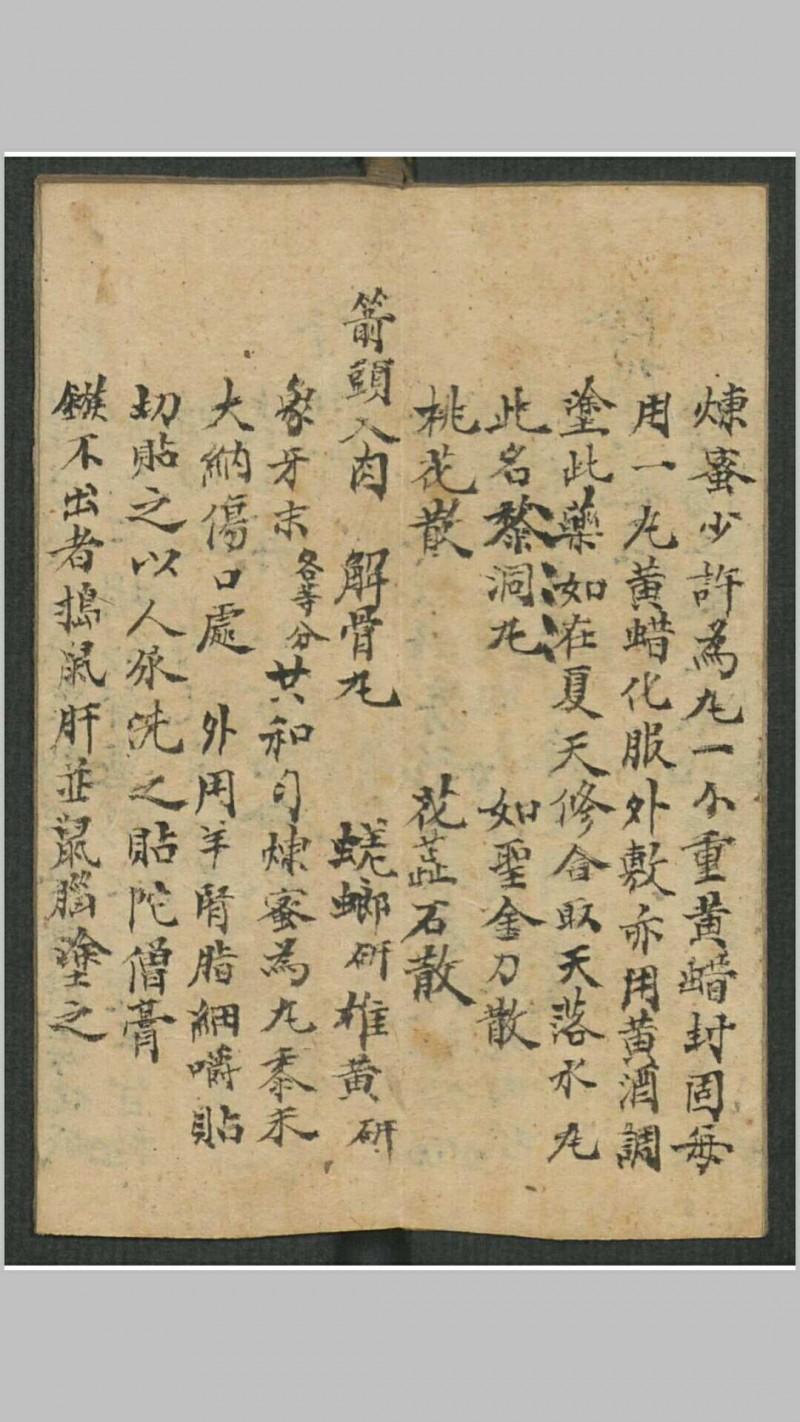 煉蜜少許為丸一个重黄蜡封固每
用一丸黄蜡化服外敷亦用黄酒調
塗此藥如在夏天修合取天落水丸
此名黎洞丸 如聖金刀散
桃花散 花蕋石散
箭頭入肉 解骨丸 蜣螂研 雄黄研
象牙末各等分共和匀煉蜜為丸黍米
大納傷口處 外用羊腎脂細嚼貼
切貼之以人尿洗之貼陀僧膏
鏃不出者搗鼠肝並鼠腦塗之